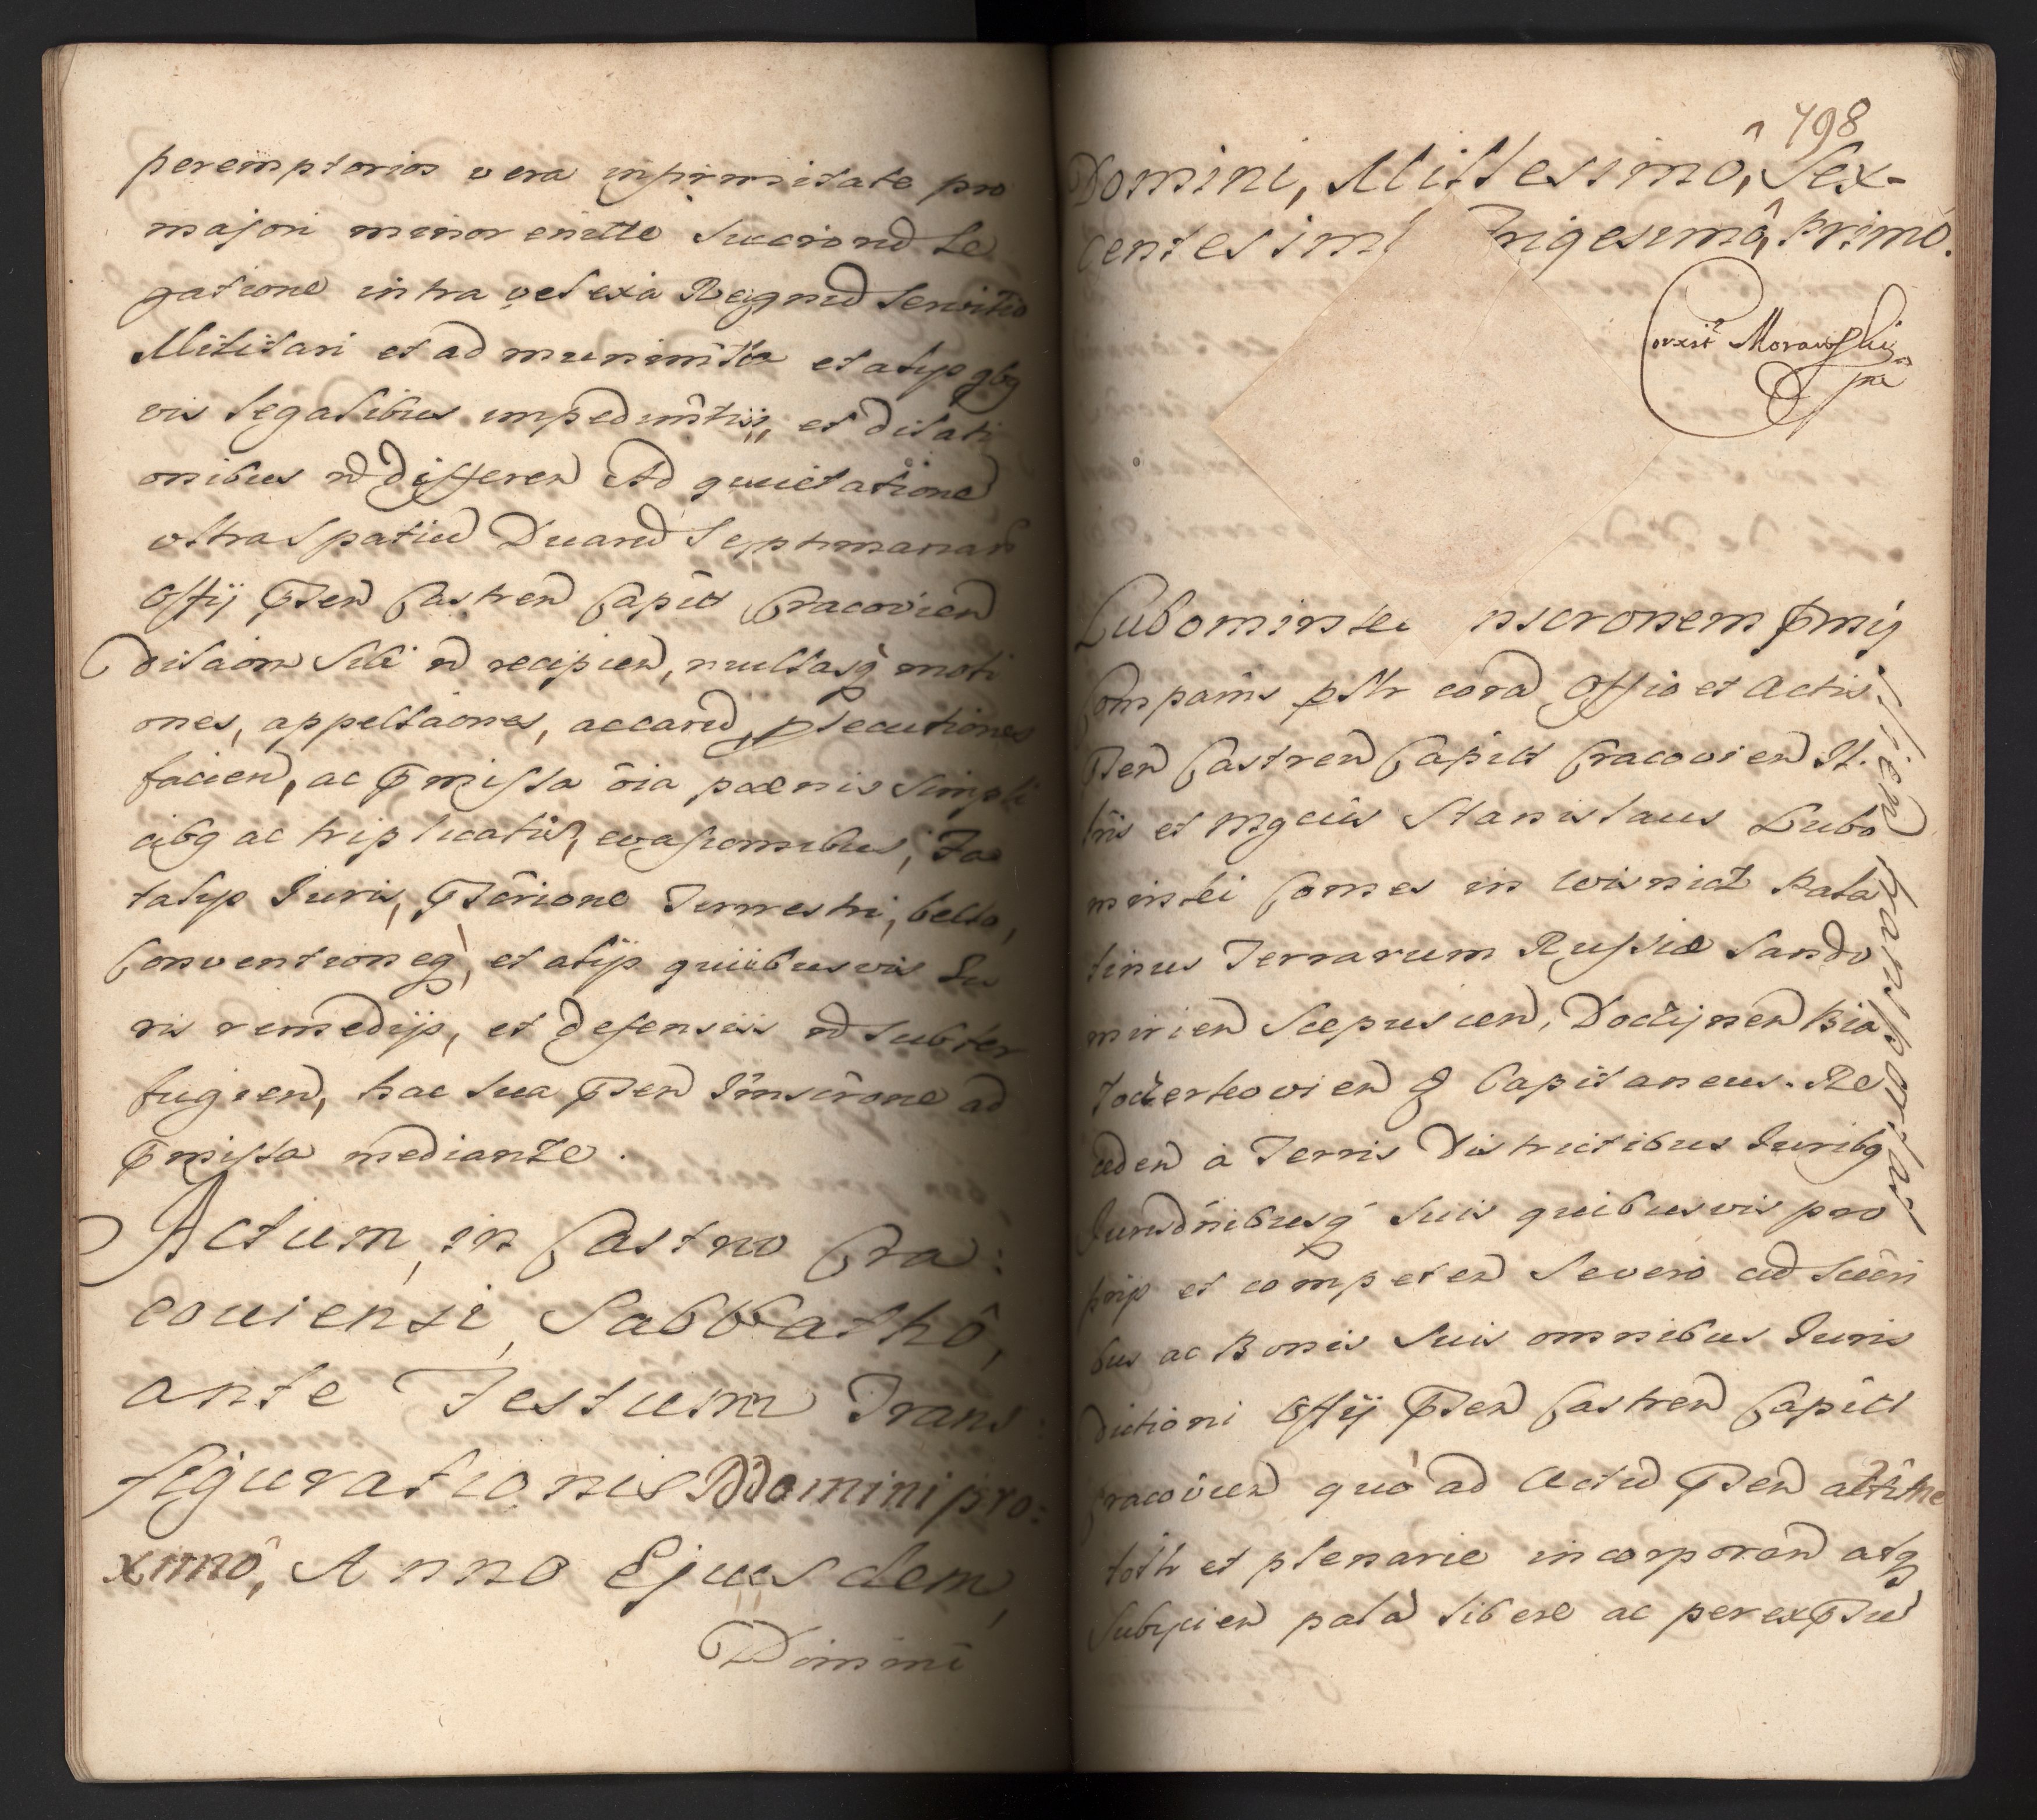 peremptorios vera infirmitate pro
majori minorenitte succrond Le
gatione intra vel exa Regnud servitio
Militari et ad munimtta et alijs qbq
vis legalibus impedimtis, et dilati
onibus nd differen Ad quietatione
ultra spatiud Duard Septimanar
Offij pnten Castren Capitt Cracovien
dilaom sibi nd recipien, nullasq moti
ones, appellaones, accard, psecutiones
facien, ac pmissa oia poenis simpli
cibq ac triplicatis, evasionibus,
talijs Juris, Terrestri, bello,
Conventioneq, et alijs quibusvis Ju
ris remedijs, et defensiis nd subter
fugien, hac sua pnten Inscrone ad
pmissa mediante.
Actum in Castro Cra:
coviensi Sabbathô,
ante Festum Trans:
figurationis Domini pro:
ximô, Anno Ejusdem,
Domini
798
Domini, Millesimô, Sex-
centesim Trigesimô, Primô.
Corxit Morawski
mp
Lubomirski nscronem pmij
Compains psltr cord Offio et Actis
pnten Castren Capitt Cracovien Il.
tris et Mgcus Stanislaus Lubo
mirski Comes in Wisnicz Pala
tinus Terrarum Russiæ Sando
mirien Scepusien, Doczijnen Bia
loczerkovien q Capitaneus. Re
ceden à Terris Districtibus Juribq
Jurisdnibusq suis quibusvis pro
prijs et competen Severo ad Sucri
bus ac Bonis suis omnibus Juris
dictioni Offij pnten Castren Capitt
Cracovien quô ad Actud pnten
tottr et plenarie incorporan atq
Subijcien palà libere ac per expssu